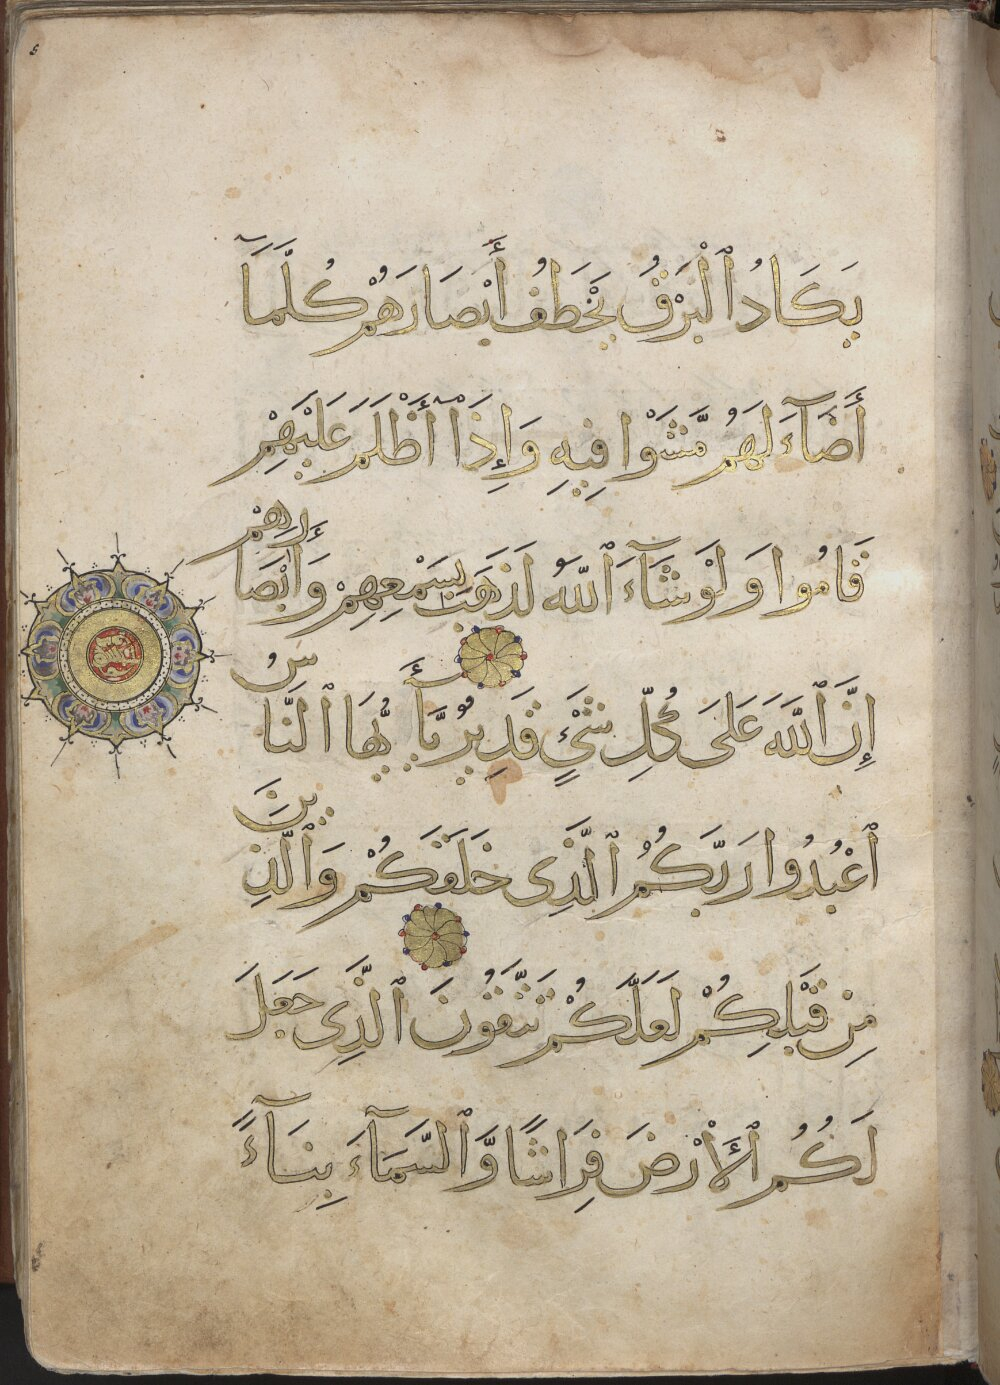 يَكَادُ ٱلْبَرْقُ يَخْطَفُ أَبْصَارَهُمْ كُلَّمَآ
أَضَآءَ لَهُمْ مَّشَوْا فِيهِ وَإِذَآ أَظْلَمَ عَلَيْهِمْ
قَامُوا وَلَوْ شَآءَ ٱللَّهُ لَذَهَبَ بِسَمْعِهِمْ وَأَبْصَارِهِمْ
إِنَّ ٱللَّهَ عَلَىٰ كُلِّ شَيْءٍ قَدِيرٌ يَٰٓأَيُّهَا ٱلنَّاسُ
ٱعْبُدُوا رَبَّكُمُ ٱلَّذِى خَلَقَكُمْ وَٱلَّذِينَ
مِن قَبْلِكُمْ لَعَلَّكُمْ تَتَّقُونَ ٱلَّذِى جَعَلَ
لَكُمُ ٱلْأَرْضَ فِرَاشًا وَّٱلسَّمَآءَ بِنَآءً